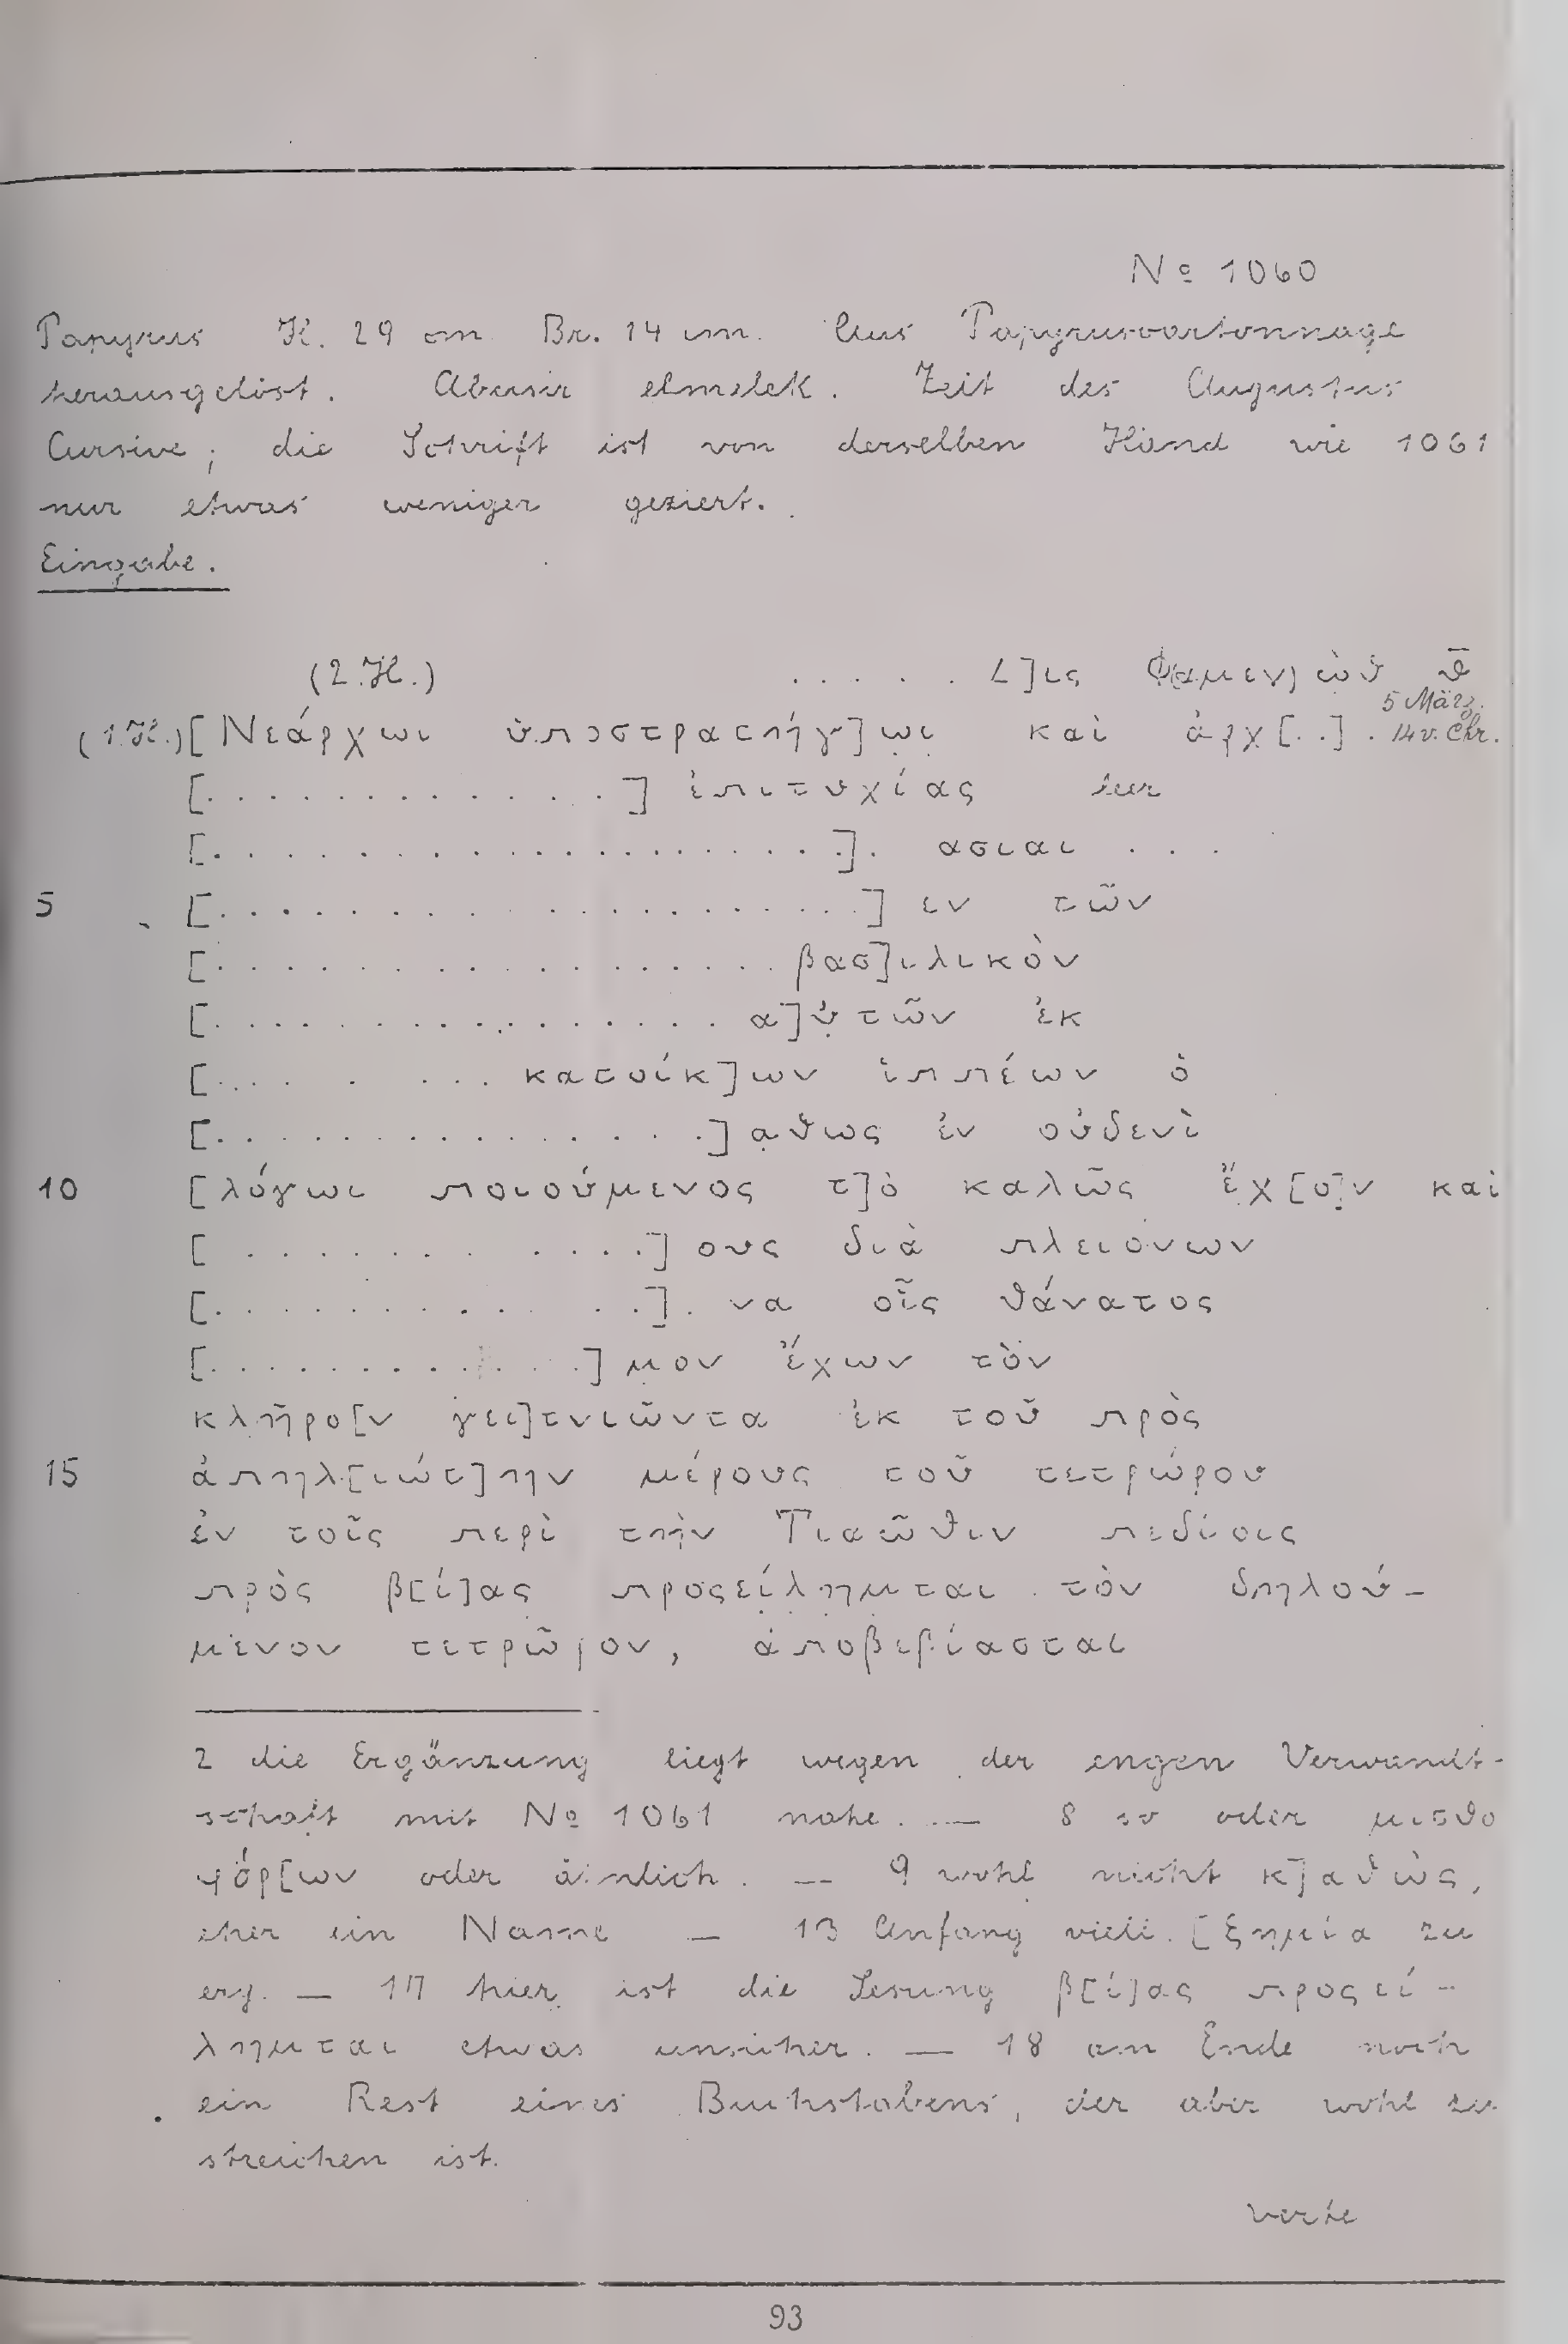 № 1060
Papyrus H. 29 cm Br. 14 cm. Aus Papyruscartonnage
herausgelöst. Abusir elmelek. Zeit des Augustus
Cursive; die Schrift ist von derselben Hand wie 1061
nur etwas weniger geziert.
Eingabe.
(2.H.) . . . . . L]ις Φ(αμεν)ὼθ θ̄
5 März
14 v. Chr.
(1.H.) [Νεάρχωι ὑποστρατήγ]ωι καὶ ἀρχ[..] .
[. . . . . . . . . . . . .] ἐπιτυχίας leer
[. . . . . . . . . . . . . . . . . . .]. ασιαι . . .
5 [. . . . . . . . . . . . . . . . . . . .] εν τῶν
[. . . . . . . . . . . . . . . . . . βασ]ιλικὸν
[. . . . . . . . . . . . . . . . α]ὐτῶν ἐκ
[. . . . . . . . κατοίκ]ων ἱππέων ὁ
[. . . . . . . . . . . . . . . .]αθως ἐν οὐδενὶ
10 [λόγωι ποιούμενος τ]ὸ καλῶς ἔχ[ο]ν καὶ
[. . . . . . . . . . . .] ους διὰ πλειόνων
[. . . . . . . . . . . . . .]. να οἷς θάνατος
[. . . . . . . . . . . . .] μον ἔχων τὸν
κλῆρο[ν γει]τνιῶντα ἐκ τοῦ πρὸς
15 ἀπηλ[ιώτ]ην μέρους τοῦ τετρώρου
ἐν τοῖς περὶ τὴν Τιαῶθιν πεδίοις
πρὸς β[ί]ας προςείλημται τὸν δηλού-
μενον τετρῶρον, ἀποβεβίασται
2 die Ergänzung liegt wegen der engen Verwandt-
schaft mit № 1061 nahe. — 8 so oder μισθο
φόρ[ων oder ähnlich. — 9 wohl nicht κ]αθὼς,
eher ein Name — 13 Anfang viell. [ζημία zu
erg. — 17 hier ist die Lesung β[ί]ας προςεί-
λημται etwas unsicher. — 18 am Ende noch
ein Rest eines Buchstabens, der aber wohl zu
streichen ist.
verte
93